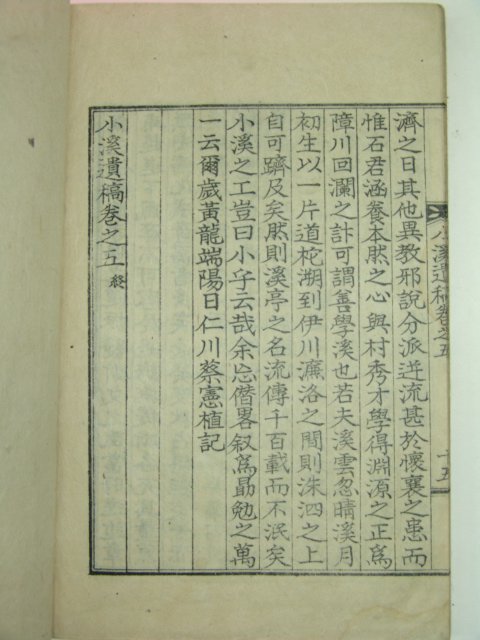 濟之日其他異教邪說分派逆流甚於懷襄之患而
惟石君涵養本然之心與村秀才學得淵源之正爲
障川回瀾之計可謂善學溪也若夫溪雲忽晴溪月
初生以一片道柁溯到伊川濂洛之間則洙泗之上
自可躋及矣然則溪亭之名流傳千百載而不泯矣
小溪之工豈曰小乎云哉余忘僭畧叙爲勗勉之萬
一云爾歲黃龍端陽日仁川蔡憲植記
小溪遺稿卷之五 終
小溪遺稿卷之五 十五